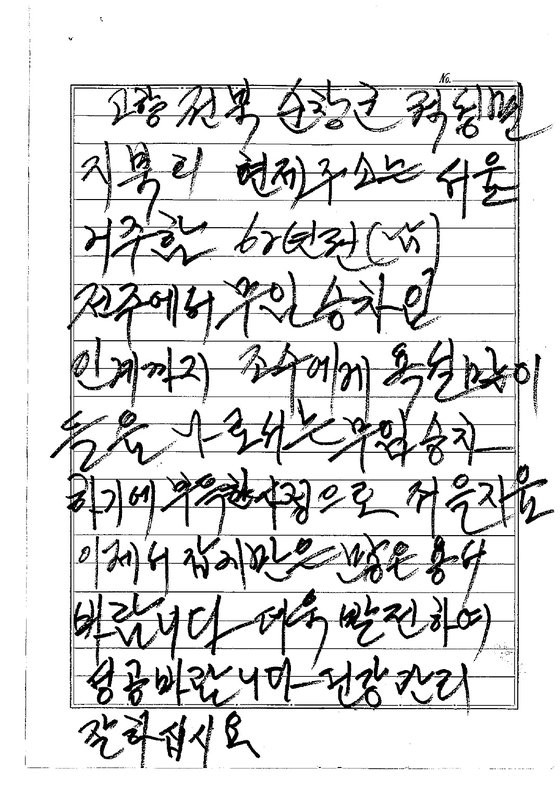 No.
고향 전북 순창군 적성면
지북리 현제주소는 서울
거주함 62년전(남)
전주에서 무임승차 인
인계까지 조수에게 욕설 많이
들음 나로서는 무임승차
하기에 부득한사정으로
이제서 만은 많은 용서
바람니다 더욱 발전하여
성공바람니다 건강 관리
잘하십시요